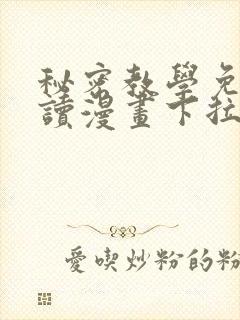 秘密教學免
讀漫畫下拉
愛喫炒粉的粉